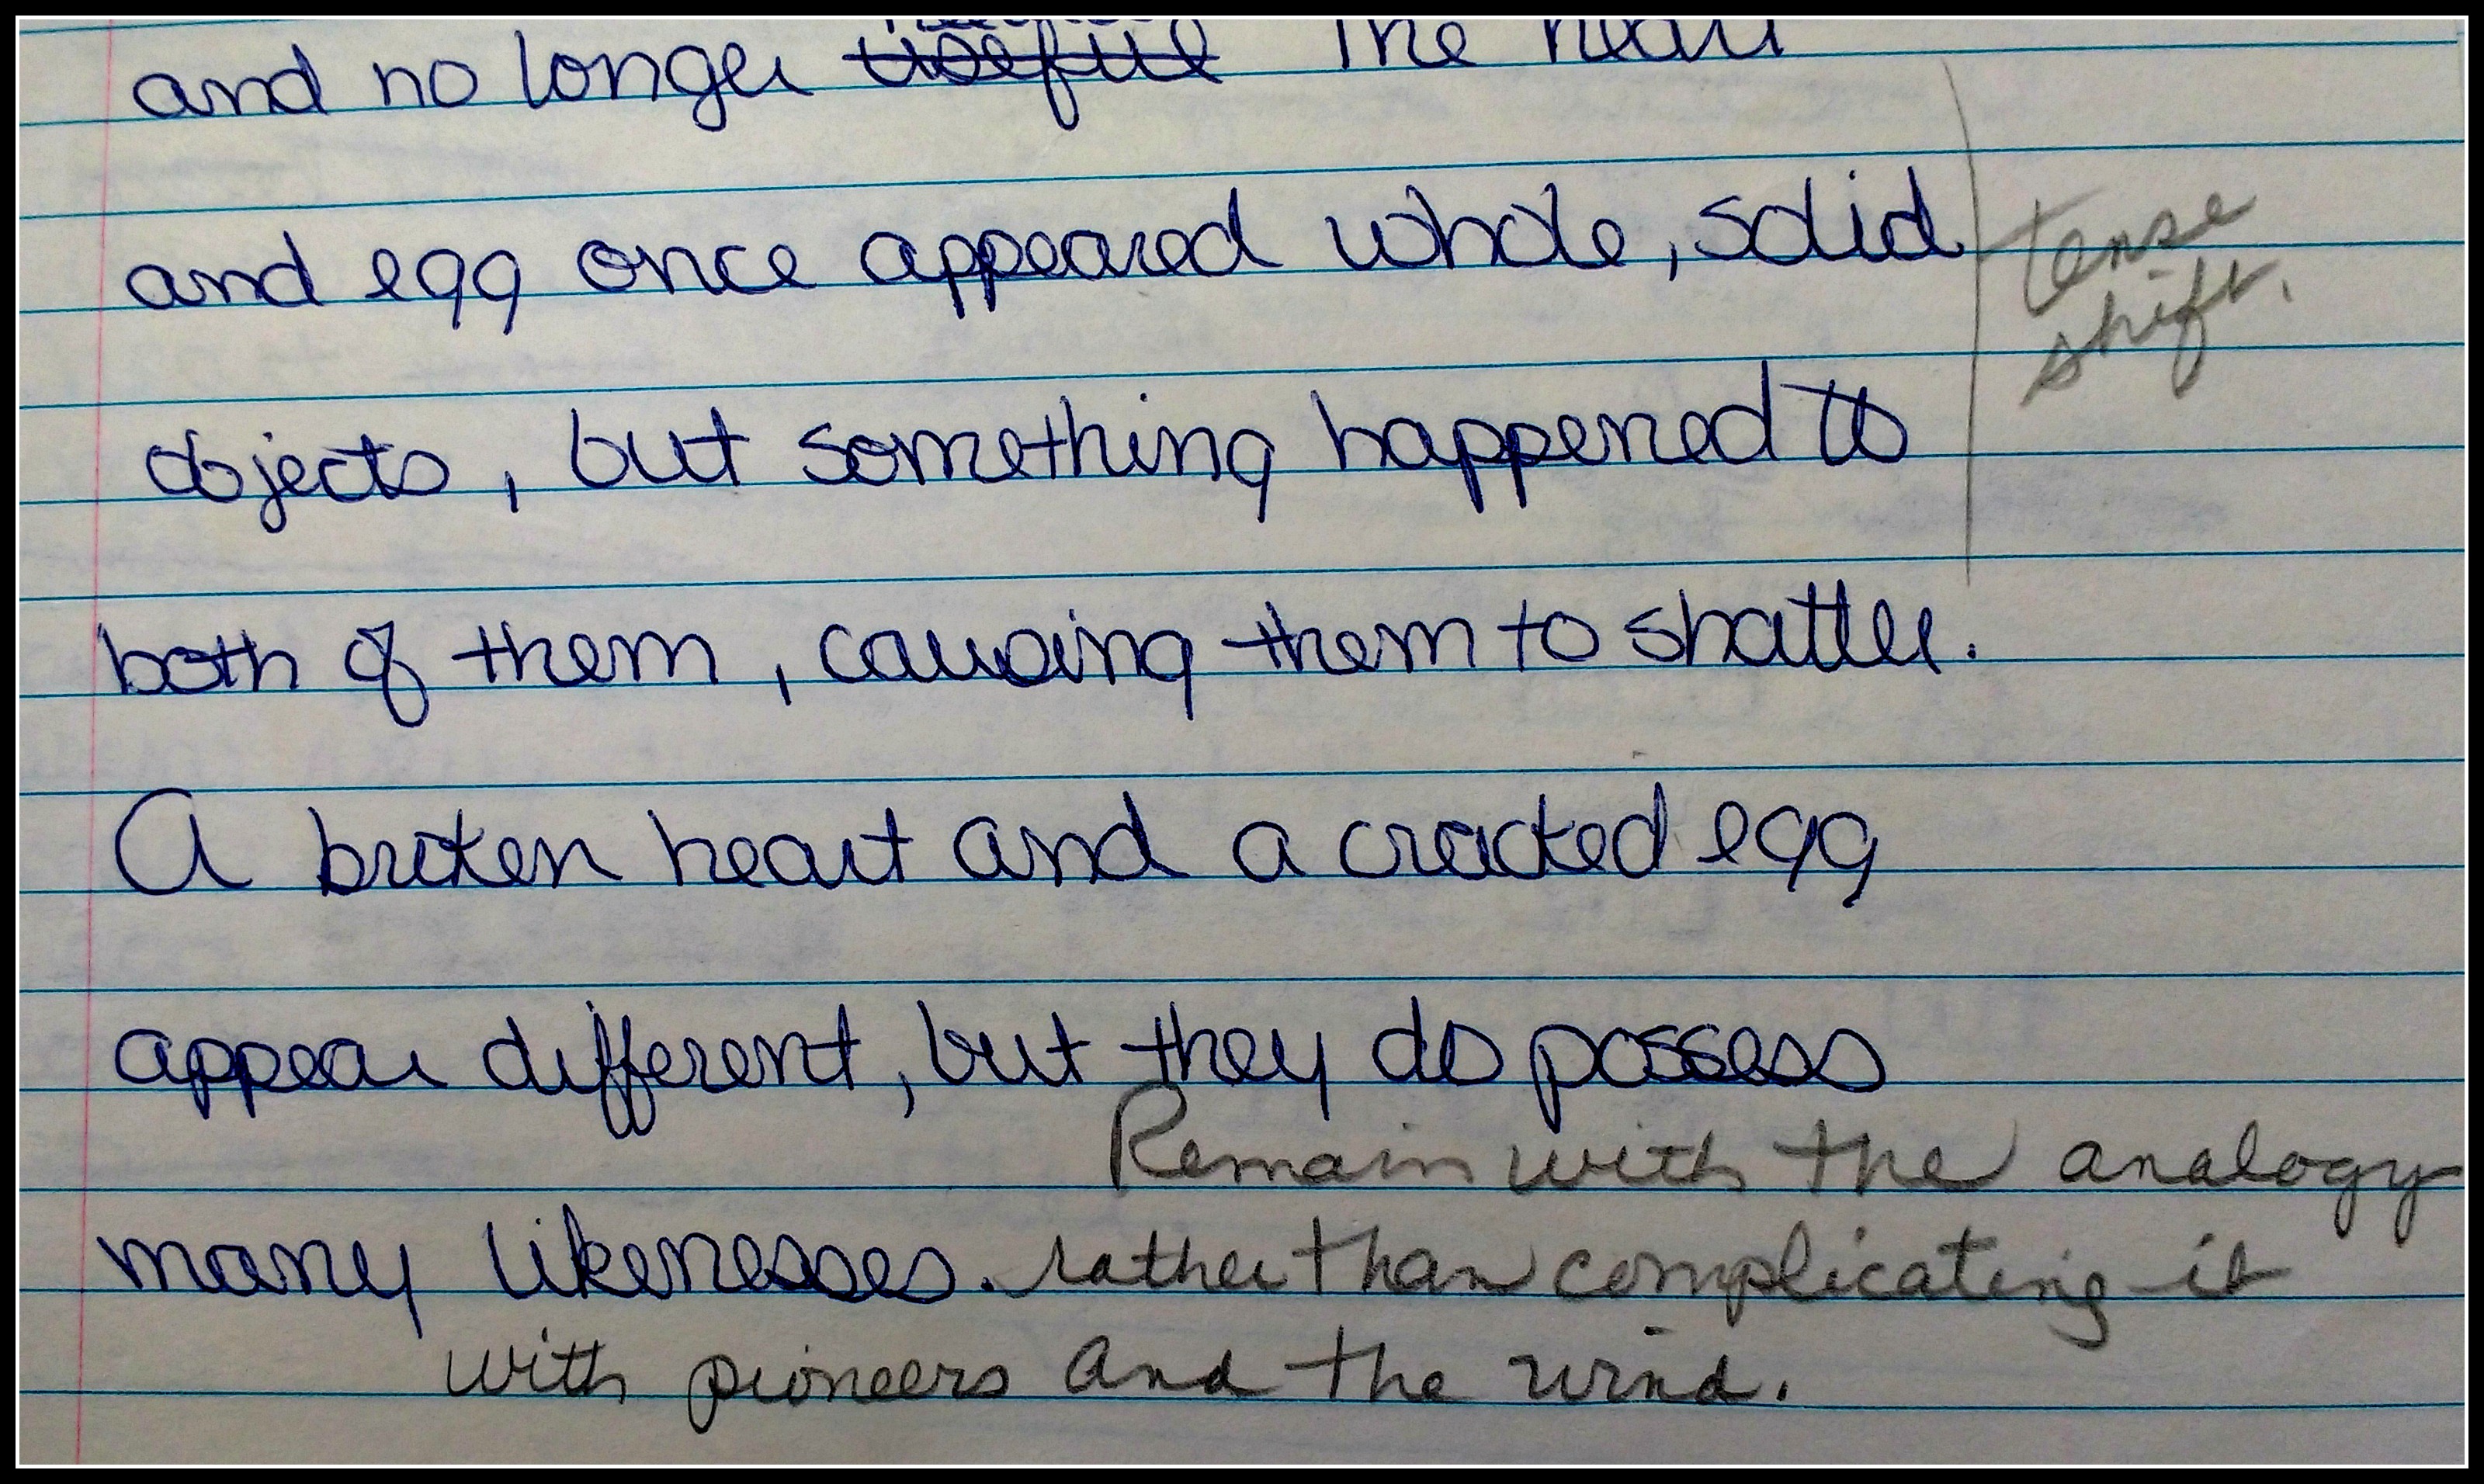 and no longer useful The heart
and egg once appeared whole, solid
tense
shift.
objects, but something happened to
both of them, causing them to shatter.
A broken heart and a cracked egg
appear different, but they do possess
Remain with the analogy
many likenesses. rather than complicating it
with pioneers and the wind.